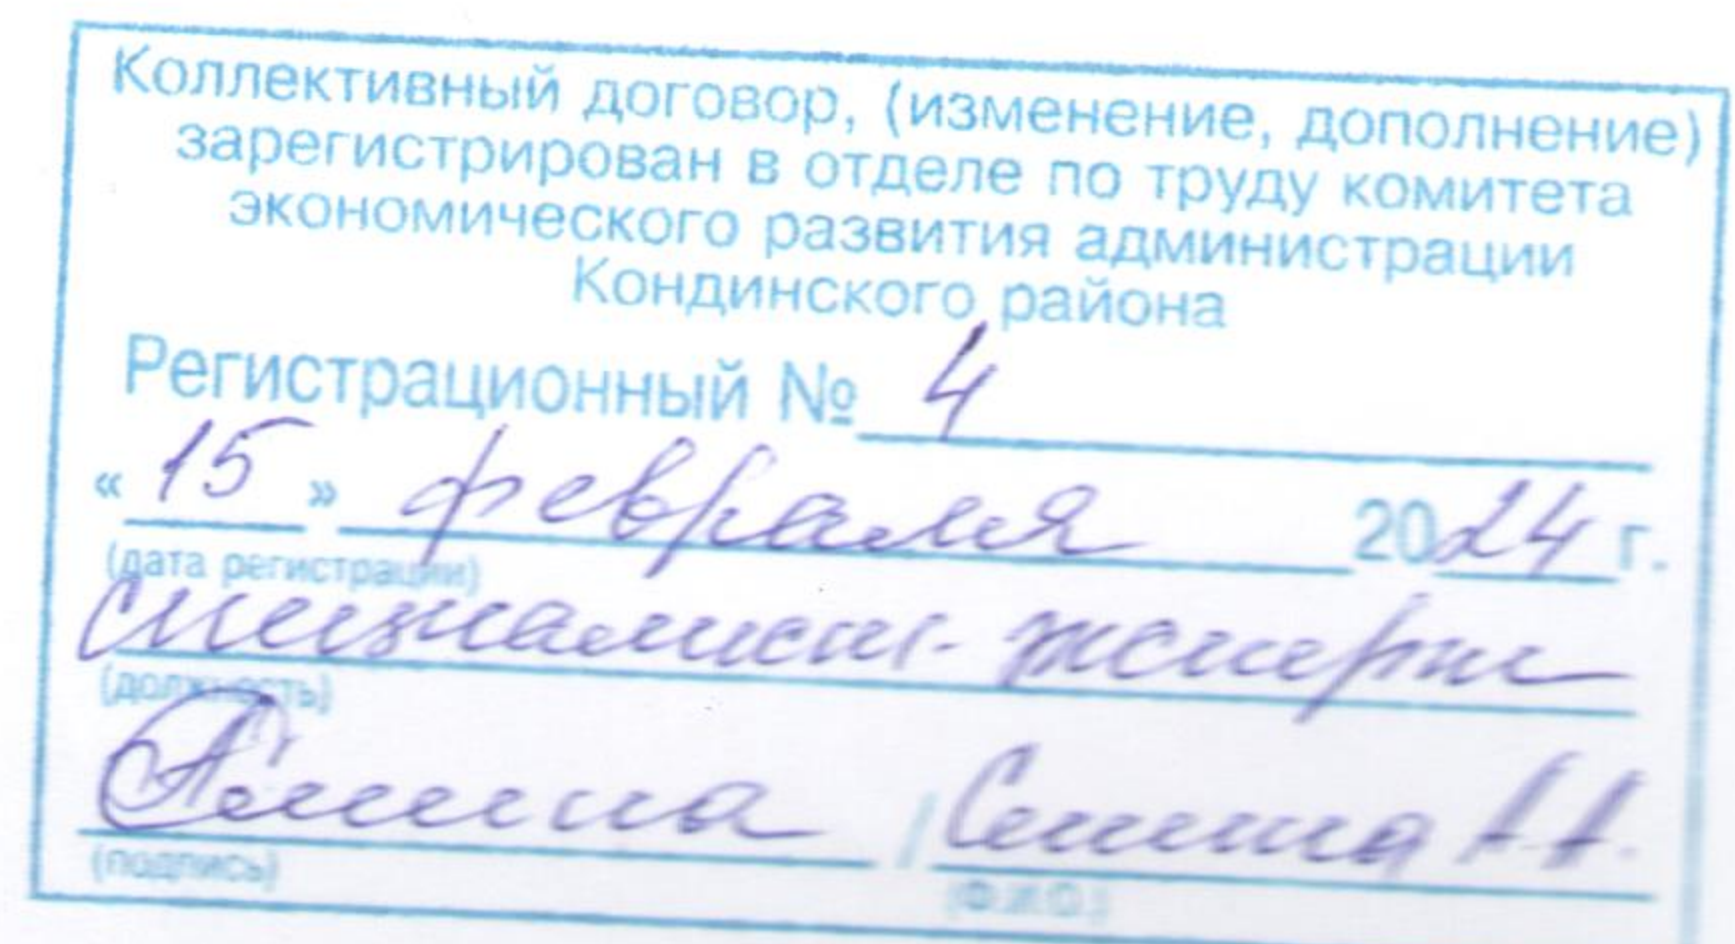 Коллективный договор, (изменение, дополнение)
зарегистрирован в отделе по труду комитета
экономического развития администрации
Кондинского района
Регистрационный № 4
« 15 » февраля 2024 г.
(дата регистрации)
специалист-эксперт
(должность)
/ А.А.
(подпись) (Ф.И.О.)